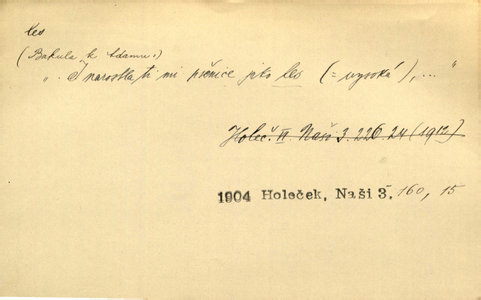 les
(Bakula k Adamu:)
„ .. I narostla ti mi pšenice jako les (= vysoká), ... "
Holeč. II. Naši 3. 226. 24 (1912)
1904 Holeček, Naši 3, 160, 15